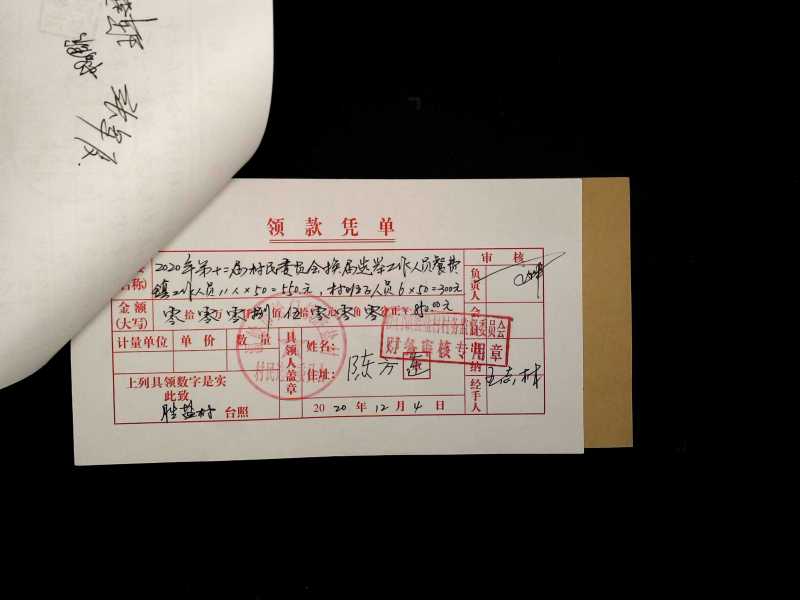 领款凭单
2020年第十二届村民委员会换届选举工作人员餐费
名称)
镇工作人员11人×50=550元，村班子人员6×50=300元
审 核
负责人
金额
(大写)
零拾零万零仟捌佰伍拾零元零角零分正¥850.00元
会
计量单位 单价 数量
具领人盖章
姓名:
住址:
陈方莲
财务审核专用章
出纳
经手人
王志林
上列具领数字是实
此致
胜盐村 台照
2020年12月4日